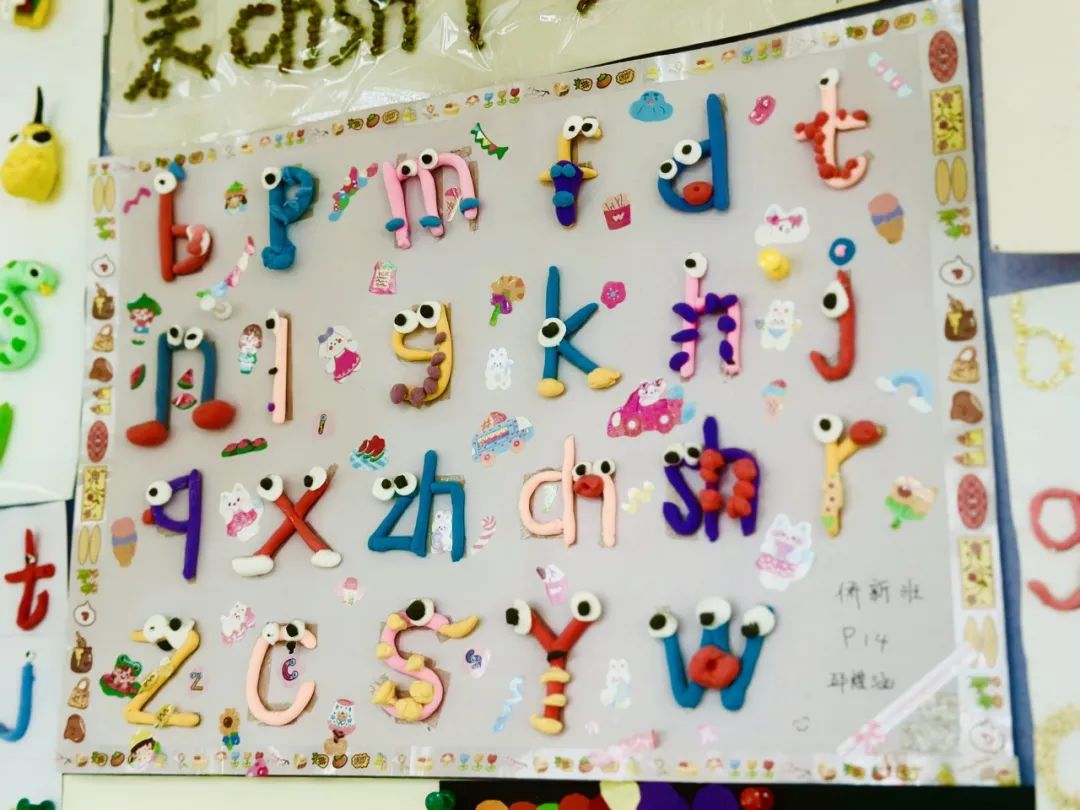 美 ch sh r
b p m f d t
n l g k h j
q x zh ch sh r
z c s Y w
侨新班
P14
t
b
g